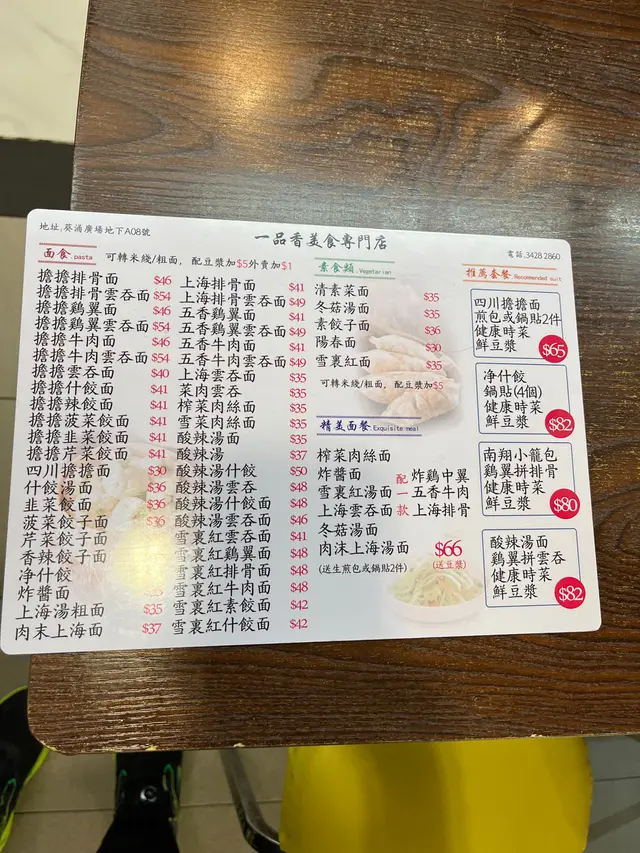 地址.葵涌廣場地下A08號
一品香美食專門店
電話.3428 2860
面食.pasta 可轉米綫/粗面, 配豆漿加$5外賣加$1
擔擔排骨面 $46
擔擔排骨雲吞面 $54
擔擔鷄翼面 $46
擔擔鷄翼雲吞面 $54
擔擔牛肉面 $46
擔擔牛肉雲吞面 $54
擔擔雲吞面 $40
擔擔什餃面 $41
擔擔辣餃面 $41
擔擔菠菜餃面 $41
擔擔韭菜餃面 $41
擔擔芹菜餃面 $41
四川擔擔面 $30
什餃湯面 $36
韭菜餃面 $36
菠菜餃子面 $36
芹菜餃子面
香辣餃子面
净什餃
炸醬面
上海湯粗面 $35
肉末上海面 $37
上海排骨面 $41
上海排骨雲吞面 $49
五香鷄翼面 $41
五香鷄翼雲吞面 $49
五香牛肉面 $41
五香牛肉雲吞面 $49
上海雲吞面 $35
菜肉雲吞 $35
榨菜肉絲面 $35
雪菜肉絲面 $35
酸辣湯面 $35
酸辣湯 $37
酸辣湯什餃 $50
酸辣湯雲吞 $48
酸辣湯什餃面 $48
酸辣湯雲吞面 $46
雪裏紅雲吞面 $41
雪裏紅鷄翼面 $48
雪裏紅排骨面 $48
雪裏紅牛肉面 $48
雪裏紅素餃面 $42
雪裏紅什餃面 $42
素食類.Vegetarian
清素菜面 $35
冬菇湯面 $35
素餃子面 $36
陽春面 $30
雪裏紅面 $35
可轉米綫/粗面, 配豆漿加$5
精美面餐.Exquisite meal
榨菜肉絲面
炸醬面
雪裏紅湯面
上海雲吞面
冬菇湯面
肉沫上海湯面
(送生煎包或鍋貼2件)
配一款
炸鷄中翼
五香牛肉
上海排骨
$66
(送豆漿)
推薦套餐.Recommended suit
四川擔擔面
煎包或鍋貼2件
健康時菜
鮮豆漿
$65
净什餃
鍋貼(4個)
健康時菜
鮮豆漿
$82
南翔小籠包
鷄翼拼排骨
健康時菜
鮮豆漿
$80
酸辣湯面
鷄翼拼雲吞
健康時菜
鮮豆漿
$82